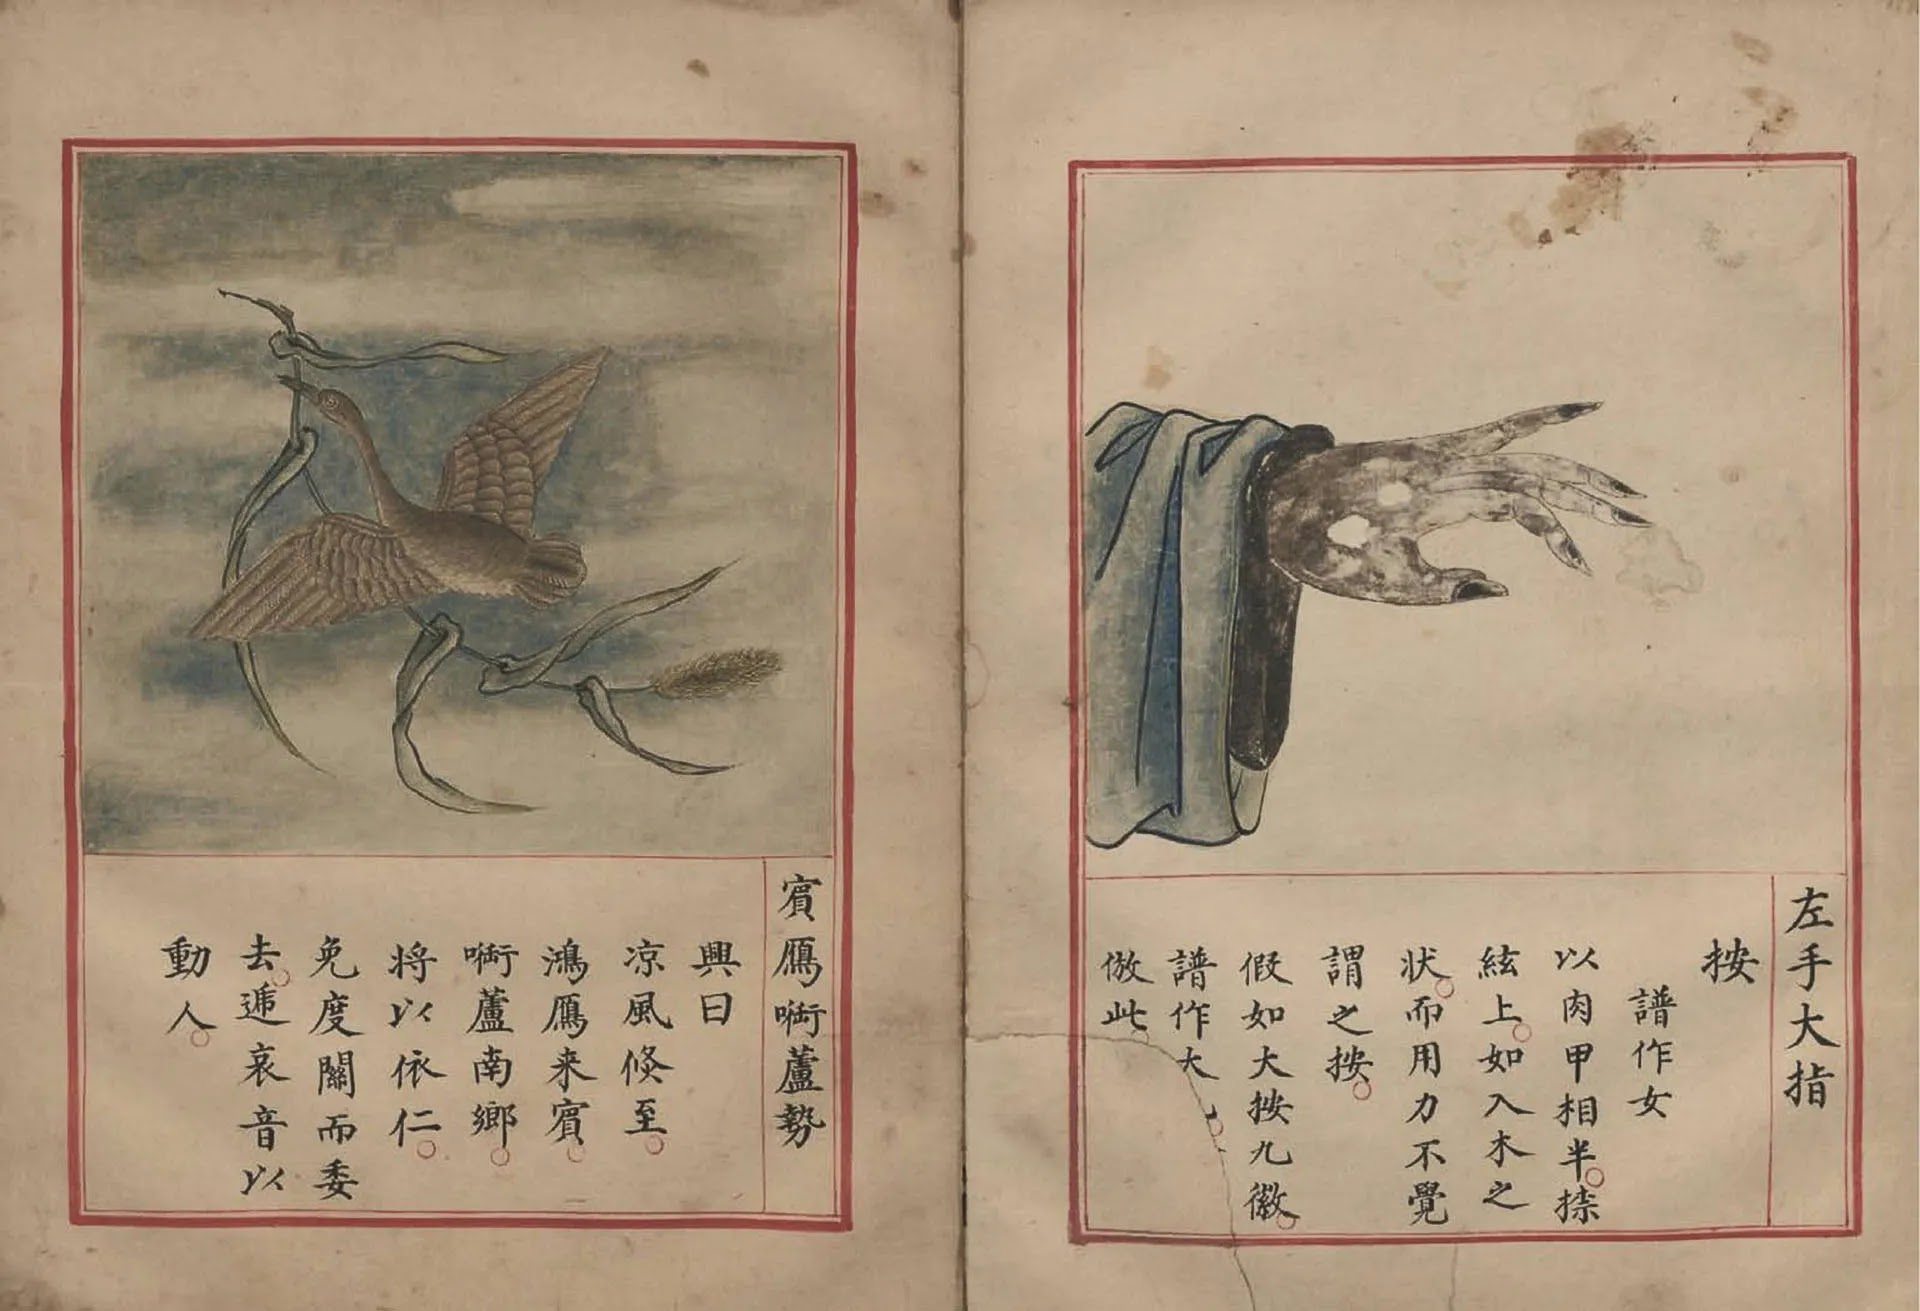 左手大指
按
譜作女
以肉甲相半。捺
絃上。如入木之
状。而用力不覺
謂之按。
假如大按九徽。
譜作大
倣此。
賔鴈啣蘆勢
興曰
凉風倏至。
鴻鴈来賔。
啣蘆南鄉。
将以依仁。
免度關而委
去。遞哀音以
動人。